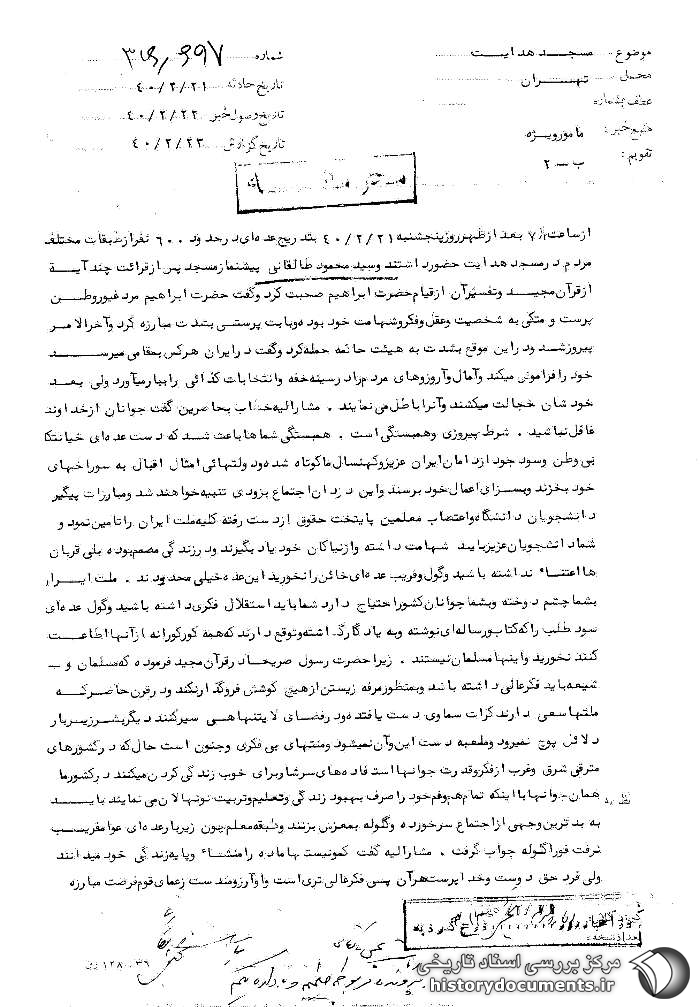 موضوع : مسجد هدایت
محل تهران
عطف بشماره
منبع خبر : مامور ویژه
تقویم : ب - ۲
شماره
تاریخ حادثه ۴۰/۲/۲۱
تاریخ وصول خبر ۴۰/۲/۲۲
تاریخ گزارش ۴۰/۲/۲۳
از ساعت ۷ بعد از ظهر روز پنجشنبه ۴۰/۲/۲۱ بتدریج عده‌ای در حدود ۶۰۰ نفر از طبقات مختلف
مردم در مسجد هدایت حضور داشتند و سید محمود طالقانی پیشنماز مسجد پس از قرائت چند آیه
از قرآن مجید و تفسیر آن از قیام حضرت ابراهیم صحبت کرد و گفت حضرت ابراهیم مرد غیور وطن
پرست و متکی به شخصیت و عقل و فکر و شهامت خود بوده و با بت پرستی بشدت مبارزه کرد و آخر الامر
پیروز شد و در این موقع بشدت به هیئت حاکمه حمله کرد و گفت در ایران هر کس بمقامی میرسد
خود را فراموش میکند و آمال و آرزوهای مردم را در سینه خفه و انتخابات کذائی را ببار میآورد ولی بعد
خودشان خجالت میکشند و آنرا باطل می نمایند . مشارالیه خطاب بحاضرین گفت جوانان از خداوند
غافل نباشید . شرط پیروزی و همبستگی است . همبستگی شماها باعث شد که دست عده‌ای خیانتکا
بی وطن و سودجو از دامان ایران عزیز و کهنسال ما کوتاه شده و دولتهائی امثال اقبال به سوراخهای
خود بخزند و بسزای اعمال خود برسند و این دزدان اجتماع بزودی تنبیه خواهند شد و مبارزات پیگیر
دانشجویان دانشگاه و اعتصاب معلمین پایتخت حقوق از دست رفته کلیه ملت ایران را تامین نمود و
شما دانشجویان عزیز باید شهامت داشته و از نیاکان خود یاد بگیرند و در زندگی مصمم بوده بلی قربان
ها اعتناء نداشته باشید و گول و فریب عده‌ای خائن را نخورید این عده خیلی محدودند . ملت ایران
بشما چشم دوخته و بشما جوانان کشور احتیاج دارد شما باید استقلال فکری داشته باشید و گول عده‌ای
سود طلب را که کتاب و رساله‌ای نوشته و به یادگار گذاشته و توقع دارند که همه کورکورانه از آنها اطاعت
کنند نخورید و اینها مسلمان نیستند . زیرا حضرت رسول صریحا در قرآن مجید فرموده که مسلمان و -
شیعه باید فکر عالی داشته باشد و بمنظور مرفه زیستن از هیچ کوشش فروگذار نکند و در قرن حاضر که
ملتها سعی دارند کرات سماوی دست یافته و در فضای لایتناهی سیر کنند دیگر بشر زیر بار
دلائل پوچ نمیرود و ملعبه دست این و آن نمیشود و منتهای بی فکری و جنون است حال که در کشورهای
مترقی شرق و غرب از فکر و قدرت جوانها استفاده‌های سرشار برای خوب زندگی کردن میکنند در کشور ما
همان جوانها با اینکه تمام هم و غم خود را صرف بهبود زندگی و تعلیم و تربیت نونهالان می نمایند باید
به بدترین وجهی از اجتماع سرخورده و گلوله بمغزش بزنند و طبقه معلم چون زیر بار عده‌ای عوامفریب
نرفت فورا گلوله جواب گرفت . مشارالیه گفت کمونیست ها ماده را منشاء و پایه زندگی خود میدانند
ولی فرد حق دوست و خداپرست هر آن پی فکر عالی تری است و او آرزومند است زعمای قوم فرصت مبارزه
مرکز بررسی اسناد تاریخی
historydocuments.ir